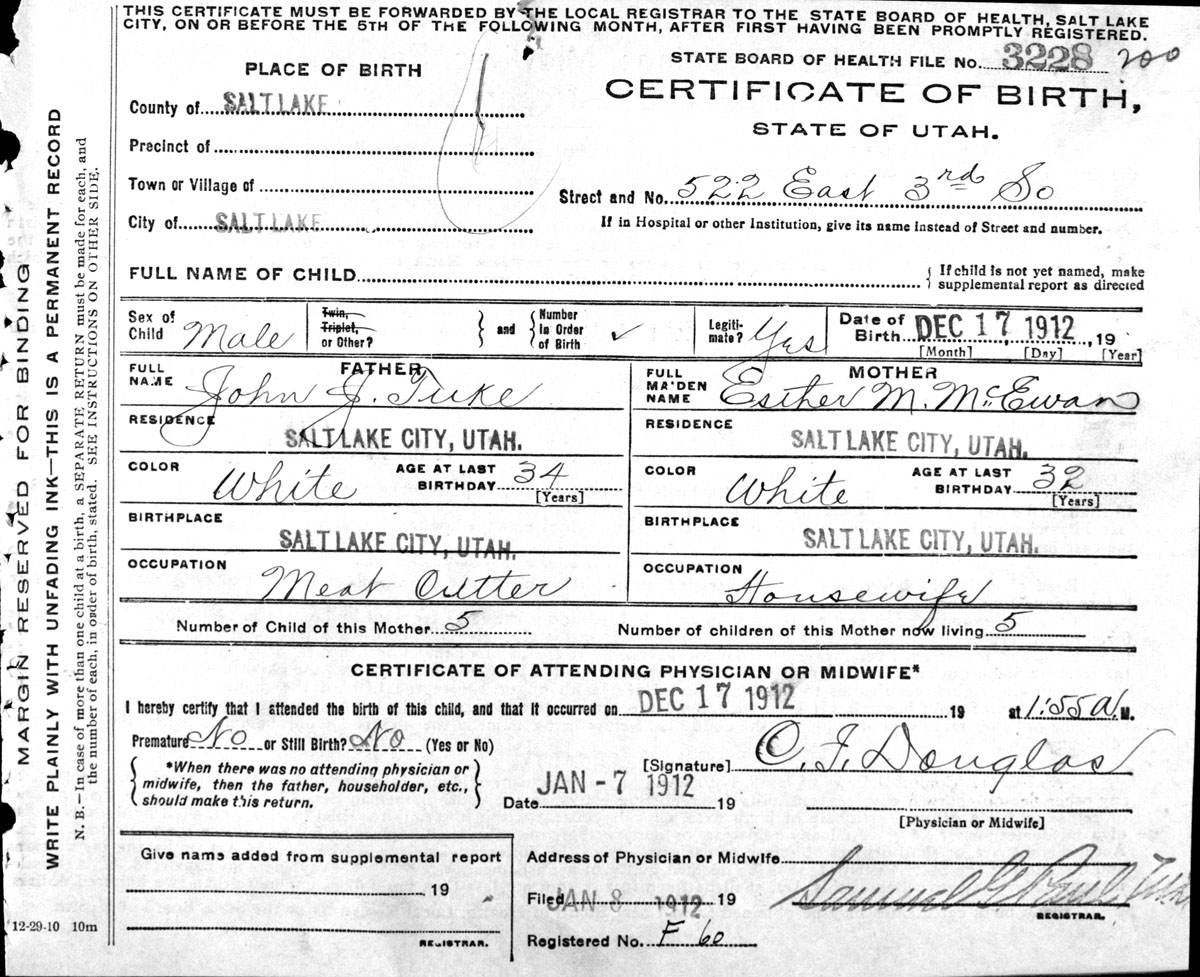 THIS CERTIFICATE MUST BE FORWARDED BY THE LOCAL REGISTRAR TO THE STATE BOARD OF HEALTH, SALT LAKE
CITY, ON OR BEFORE THE 5TH OF THE FOLLOWING MONTH, AFTER FIRST HAVING BEEN PROMPTLY REGISTERED.
STATE BOARD OF HEALTH FILE No. 3228 200
PLACE OF BIRTH
CERTIFICATE OF BIRTH,
STATE OF UTAH.
County of SALT LAKE
Precinct of
Town or Village of
Street and No. 522 East 3rd So
City of SALT LAKE
If in Hospital or other Institution, give its name instead of Street and number.
FULL NAME OF CHILD
If child is not yet named, make
supplemental report as directed
Sex of Child Male
Twin, Triplet, or Other? and Number in Order of Birth ✓
Legiti-mate? Yes
Date of Birth DEC 17 1912, 19
[Month] [Day] [Year]
FATHER
FULL NAME John J. Tuke
RESIDENCE
SALT LAKE CITY, UTAH.
COLOR White AGE AT LAST BIRTHDAY 34
[Years]
BIRTHPLACE
SALT LAKE CITY, UTAH.
OCCUPATION
Meat Cutter
MOTHER
FULL MAIDEN NAME Esther M. McEwan
RESIDENCE
SALT LAKE CITY, UTAH.
COLOR White AGE AT LAST BIRTHDAY 32
[Years]
BIRTHPLACE
SALT LAKE CITY, UTAH.
OCCUPATION
Housewife
Number of Child of this Mother 5 Number of children of this Mother now living 5
CERTIFICATE OF ATTENDING PHYSICIAN OR MIDWIFE*
I hereby certify that I attended the birth of this child, and that it occurred on DEC 17 1912 19 at 1:55 A. M.
Premature No or Still Birth? No (Yes or No)
*When there was no attending physician or
midwife, then the father, householder, etc.,
should make this return.
[Signature] C. F. Douglas
Date JAN -7 1912 19
[Physician or Midwife]
Give name added from supplemental report
19
REGISTRAR.
Address of Physician or Midwife
Filed JAN 8 1912 19 Samuel G Paul
REGISTRAR.
Registered No. F 60
12-29-10 10m
MARGIN RESERVED FOR BINDING
WRITE PLAINLY WITH UNFADING INK—THIS IS A PERMANENT RECORD
N. B.—In case of more than one child at a birth, a SEPARATE RETURN must be made for each, and
the number of each, in order of birth, stated. SEE INSTRUCTIONS ON OTHER SIDE.